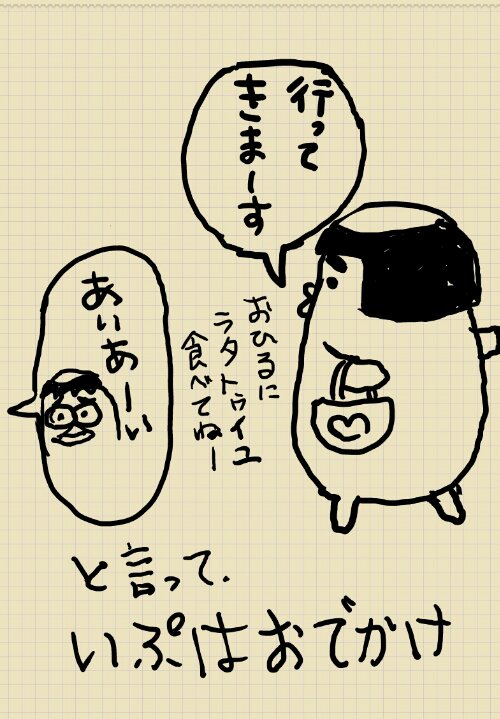 行って
きまーす
おひるに
ラタトゥイユ
食べてねー
あいあーい
と言って.
いぷはおでかけ